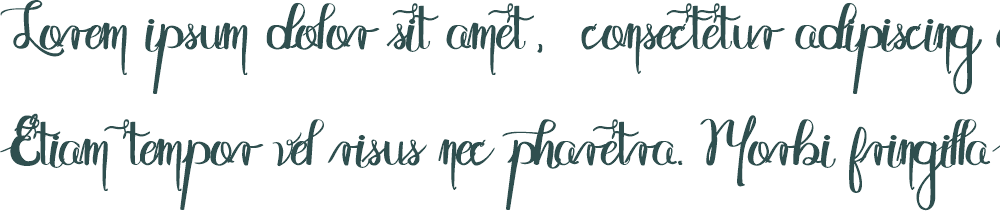 Lorem ipsum dolor sit amet, consectetur adipiscing
Etiam tempor vel risus nec pharetra. Morbi fringilla